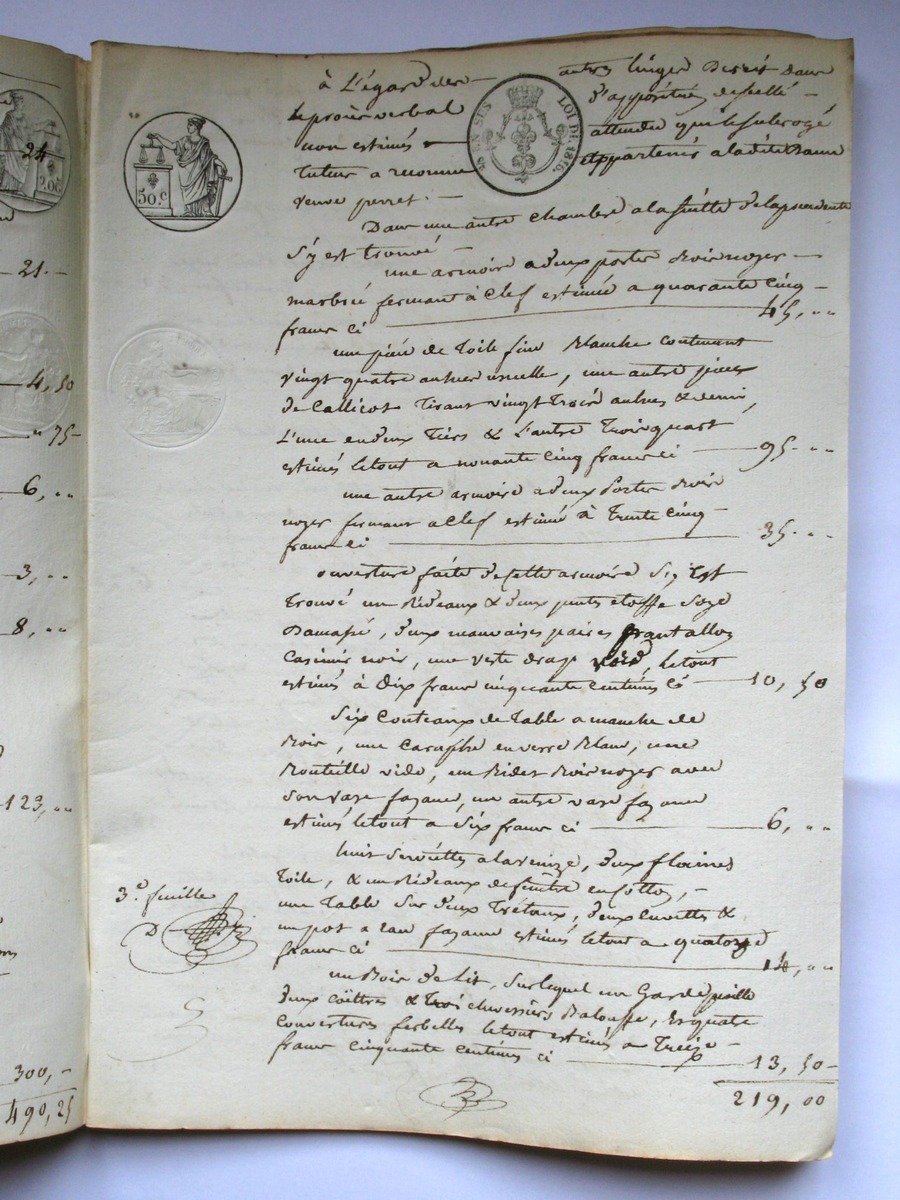 24
200
21.-
4,50
" 75-
6, ..
3, ..
8, ..
123, ..
300,-
490,25
50 c.
EN SUS
LOI DE 1816.
à L'égard des autres linges Décrits Dans
le procès verbal d'apposition de scellé -
non estimés - attendu que le subrogé
tuteur a reconnu appartenir a ladite Dame
veuve perret. -
Dans une autre chambre a la suitte de la précédente
s'y est trouvé -
une armoire a deux portes Bois noyer -
fermant à Clef estimée a quarante Cinq -
francs ci 45, ..
une pièce de Toile fine Blanche contenant
vingt quatre aulnes usuelle, une autre pièce
de Callicot Tirant vingt Trois aulnes & demi,
L'une en deux Tiers & L'autre Trois quart
estimés le tout a nonante Cinq francs ci 95. ..
une autre armoire a deux Portes Bois
noyer fermant a Clef estimé à Trente Cinq -
francs ci 35. ..
ouverture faite de cette armoire s'y Est
Trouvé un Rideaux & deux etoffe Soye
Damassé, deux mauvaises paires pantallon
Casimir noir, une veste drap noir, le tout
estimés à Dix francs cinquante centimes Ci 10, 50
Six Couteaux de Table a manche de
Bois, une Caraffe en verre Blanc, une
Bouteille vide, un Bidet Bois noyer avec
Son vase fayance, un autre vase fayance
estimés le tout a Six francs ci 6, ..
huit Serviettes a la venize, deux flaines
Toile, & un Rideaux de fenêtre en Cotton, -
une Table Sur deux Trétaux, deux Cuvettes &
un pot a eau fayance estimés le tout a quatorze
francs ci 14, ..
un Bois de Lit, Sur lequel un Garde paille
deux Coîttres & Trois chevessiers Balouffe, & quatre
Couvertures le tout estimés a Treize -
francs cinquante centimes ci 13, 50 -
219, 00
3e. feuille
D